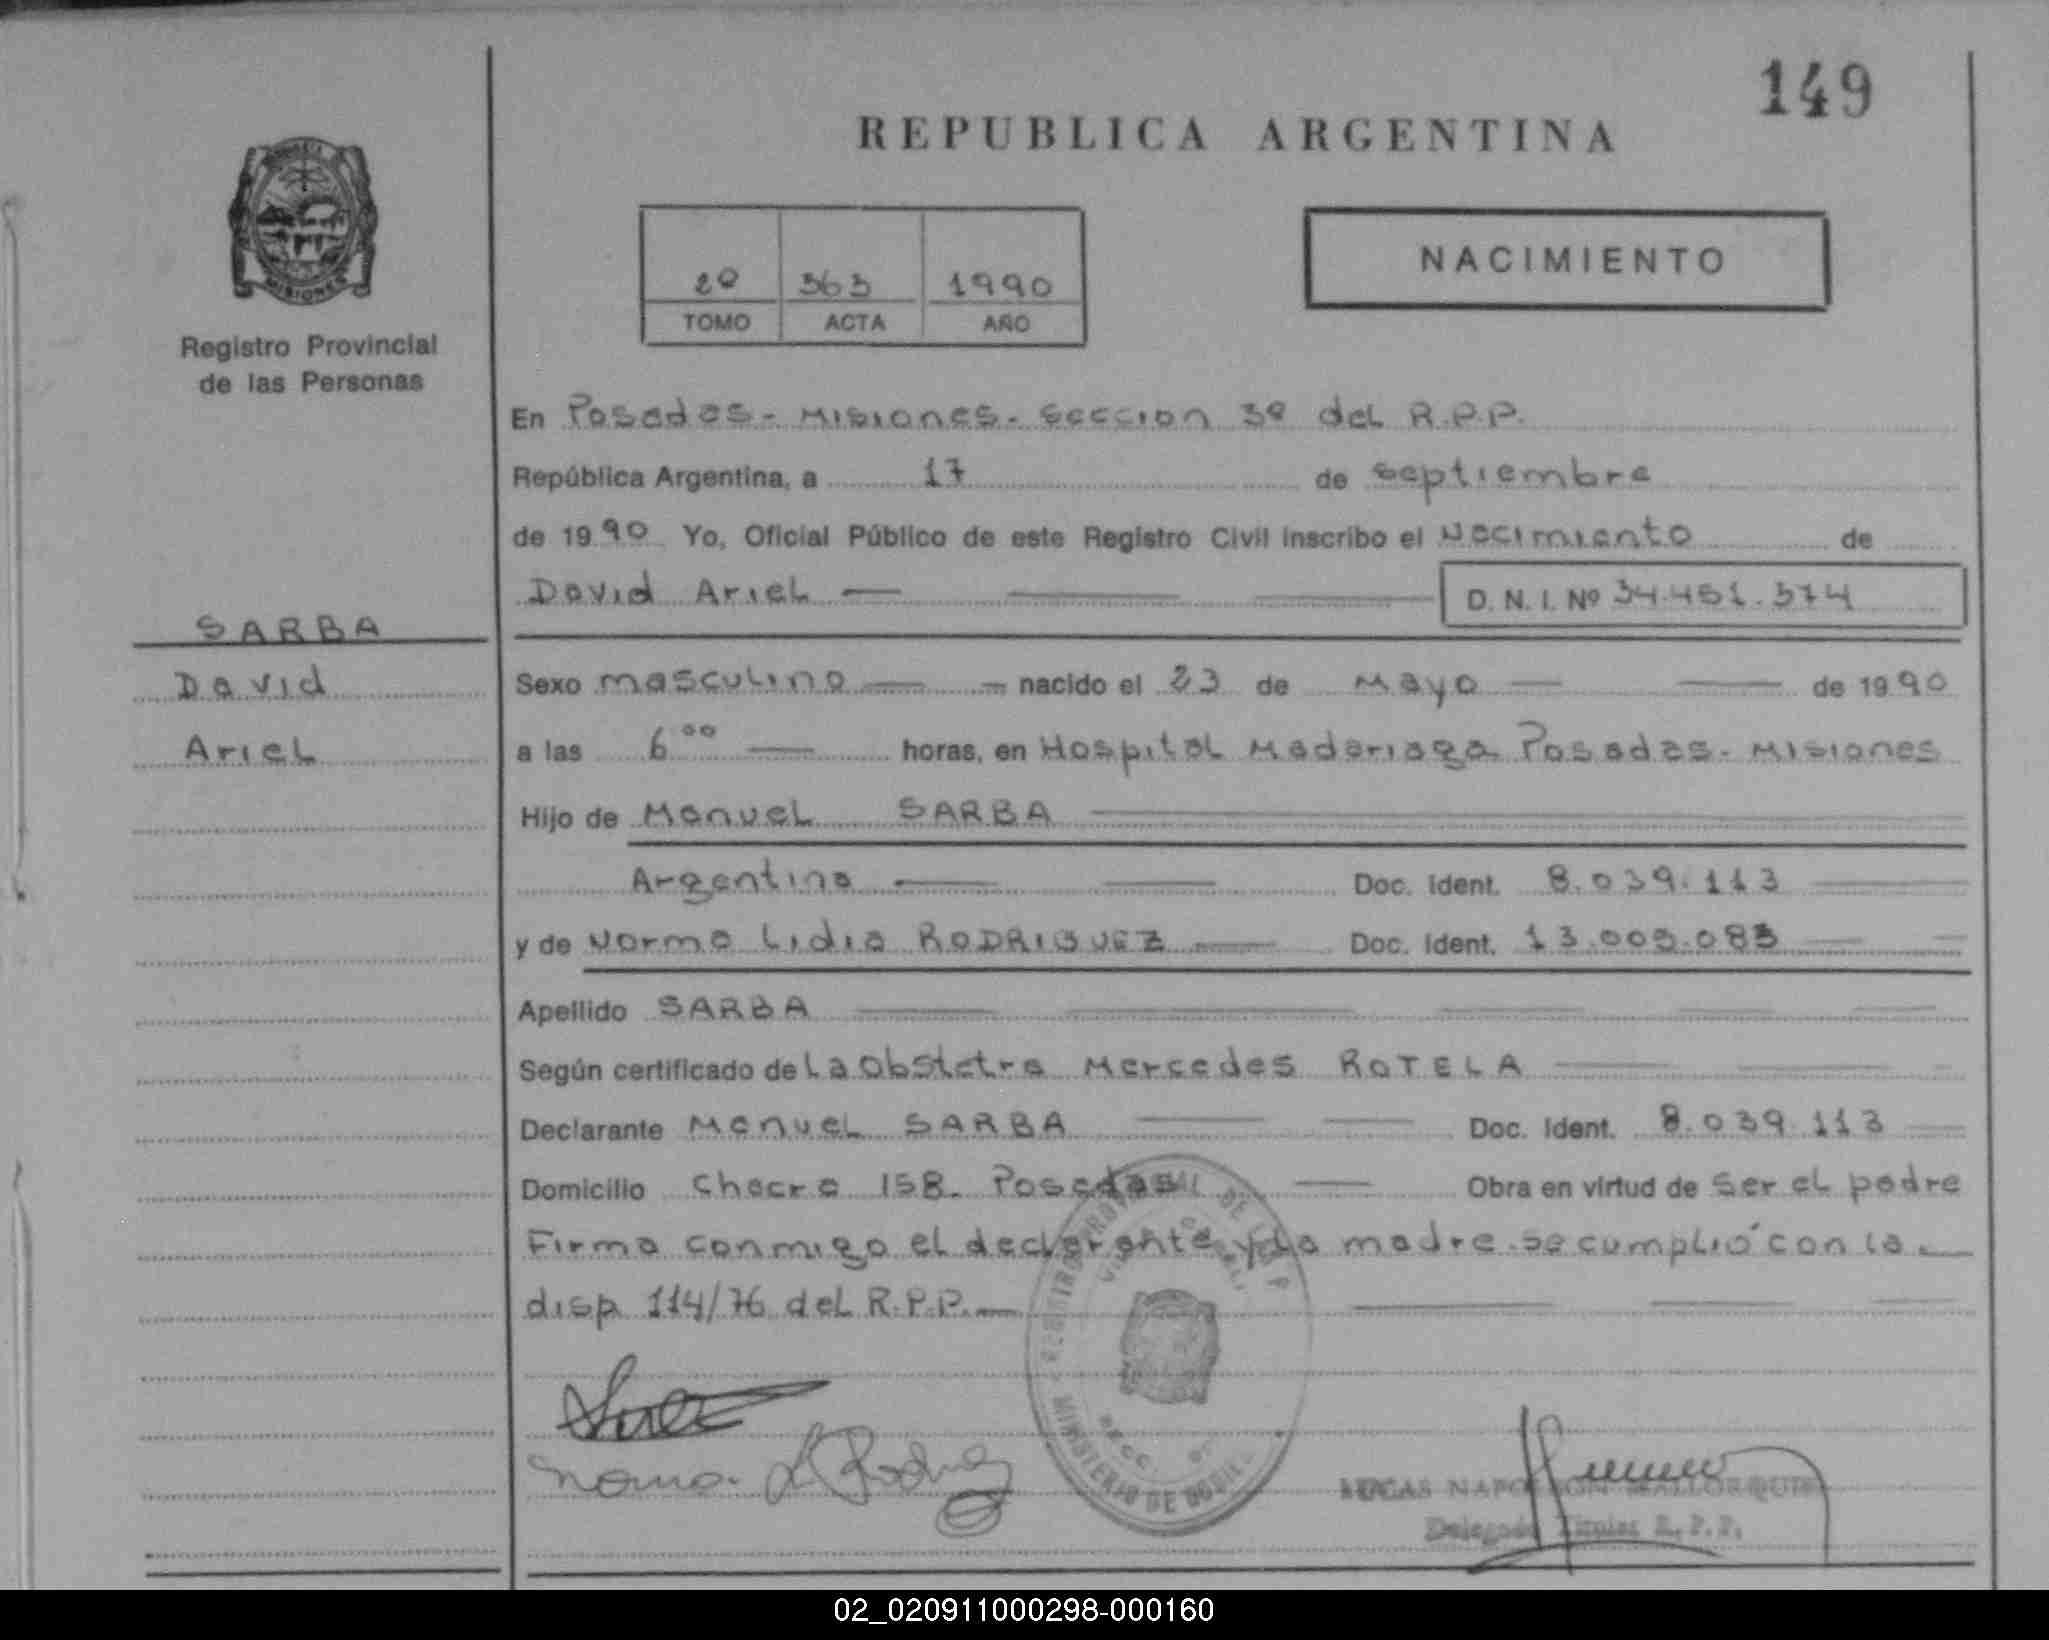 149
REPUBLICA ARGENTINA
MISIONES
Registro Provincial
de las Personas
2º 363 1990
TOMO ACTA AÑO
NACIMIENTO
En Posadas - Misiones - Seccion 3º del R.P.P.
República Argentina, a 17 de septiembre
de 1990 Yo, Oficial Público de este Registro Civil inscribo el Nacimiento de
David Ariel D. N. I. Nº 34.451.374
SARBA
David
Ariel
Sexo masculino nacido el 23 de Mayo de 1990
a las 6⁰⁰ horas, en Hospital Madariaga Posadas - Misiones
Hijo de Manuel SARBA
Argentino Doc. Ident. 8.039.113
y de Norma Lidia RODRIGUEZ Doc. Ident. 13.005.083
Apellido SARBA
Según certificado de La obstetra Mercedes ROTELA
Declarante Manuel SARBA Doc. Ident. 8.039.113
Domicilio Chacra 158. Posadas Obra en virtud de ser el padre
Firma conmigo el declarante y la madre. se cumplió con la
disp 114/76 del R.P.P.
Norma L Rodrig
MINISTERIO DE GOBIE
LUCAS NAPOLEON MALLORQUIN
Delegado Titular R. P. P.
02_020911000298-000160